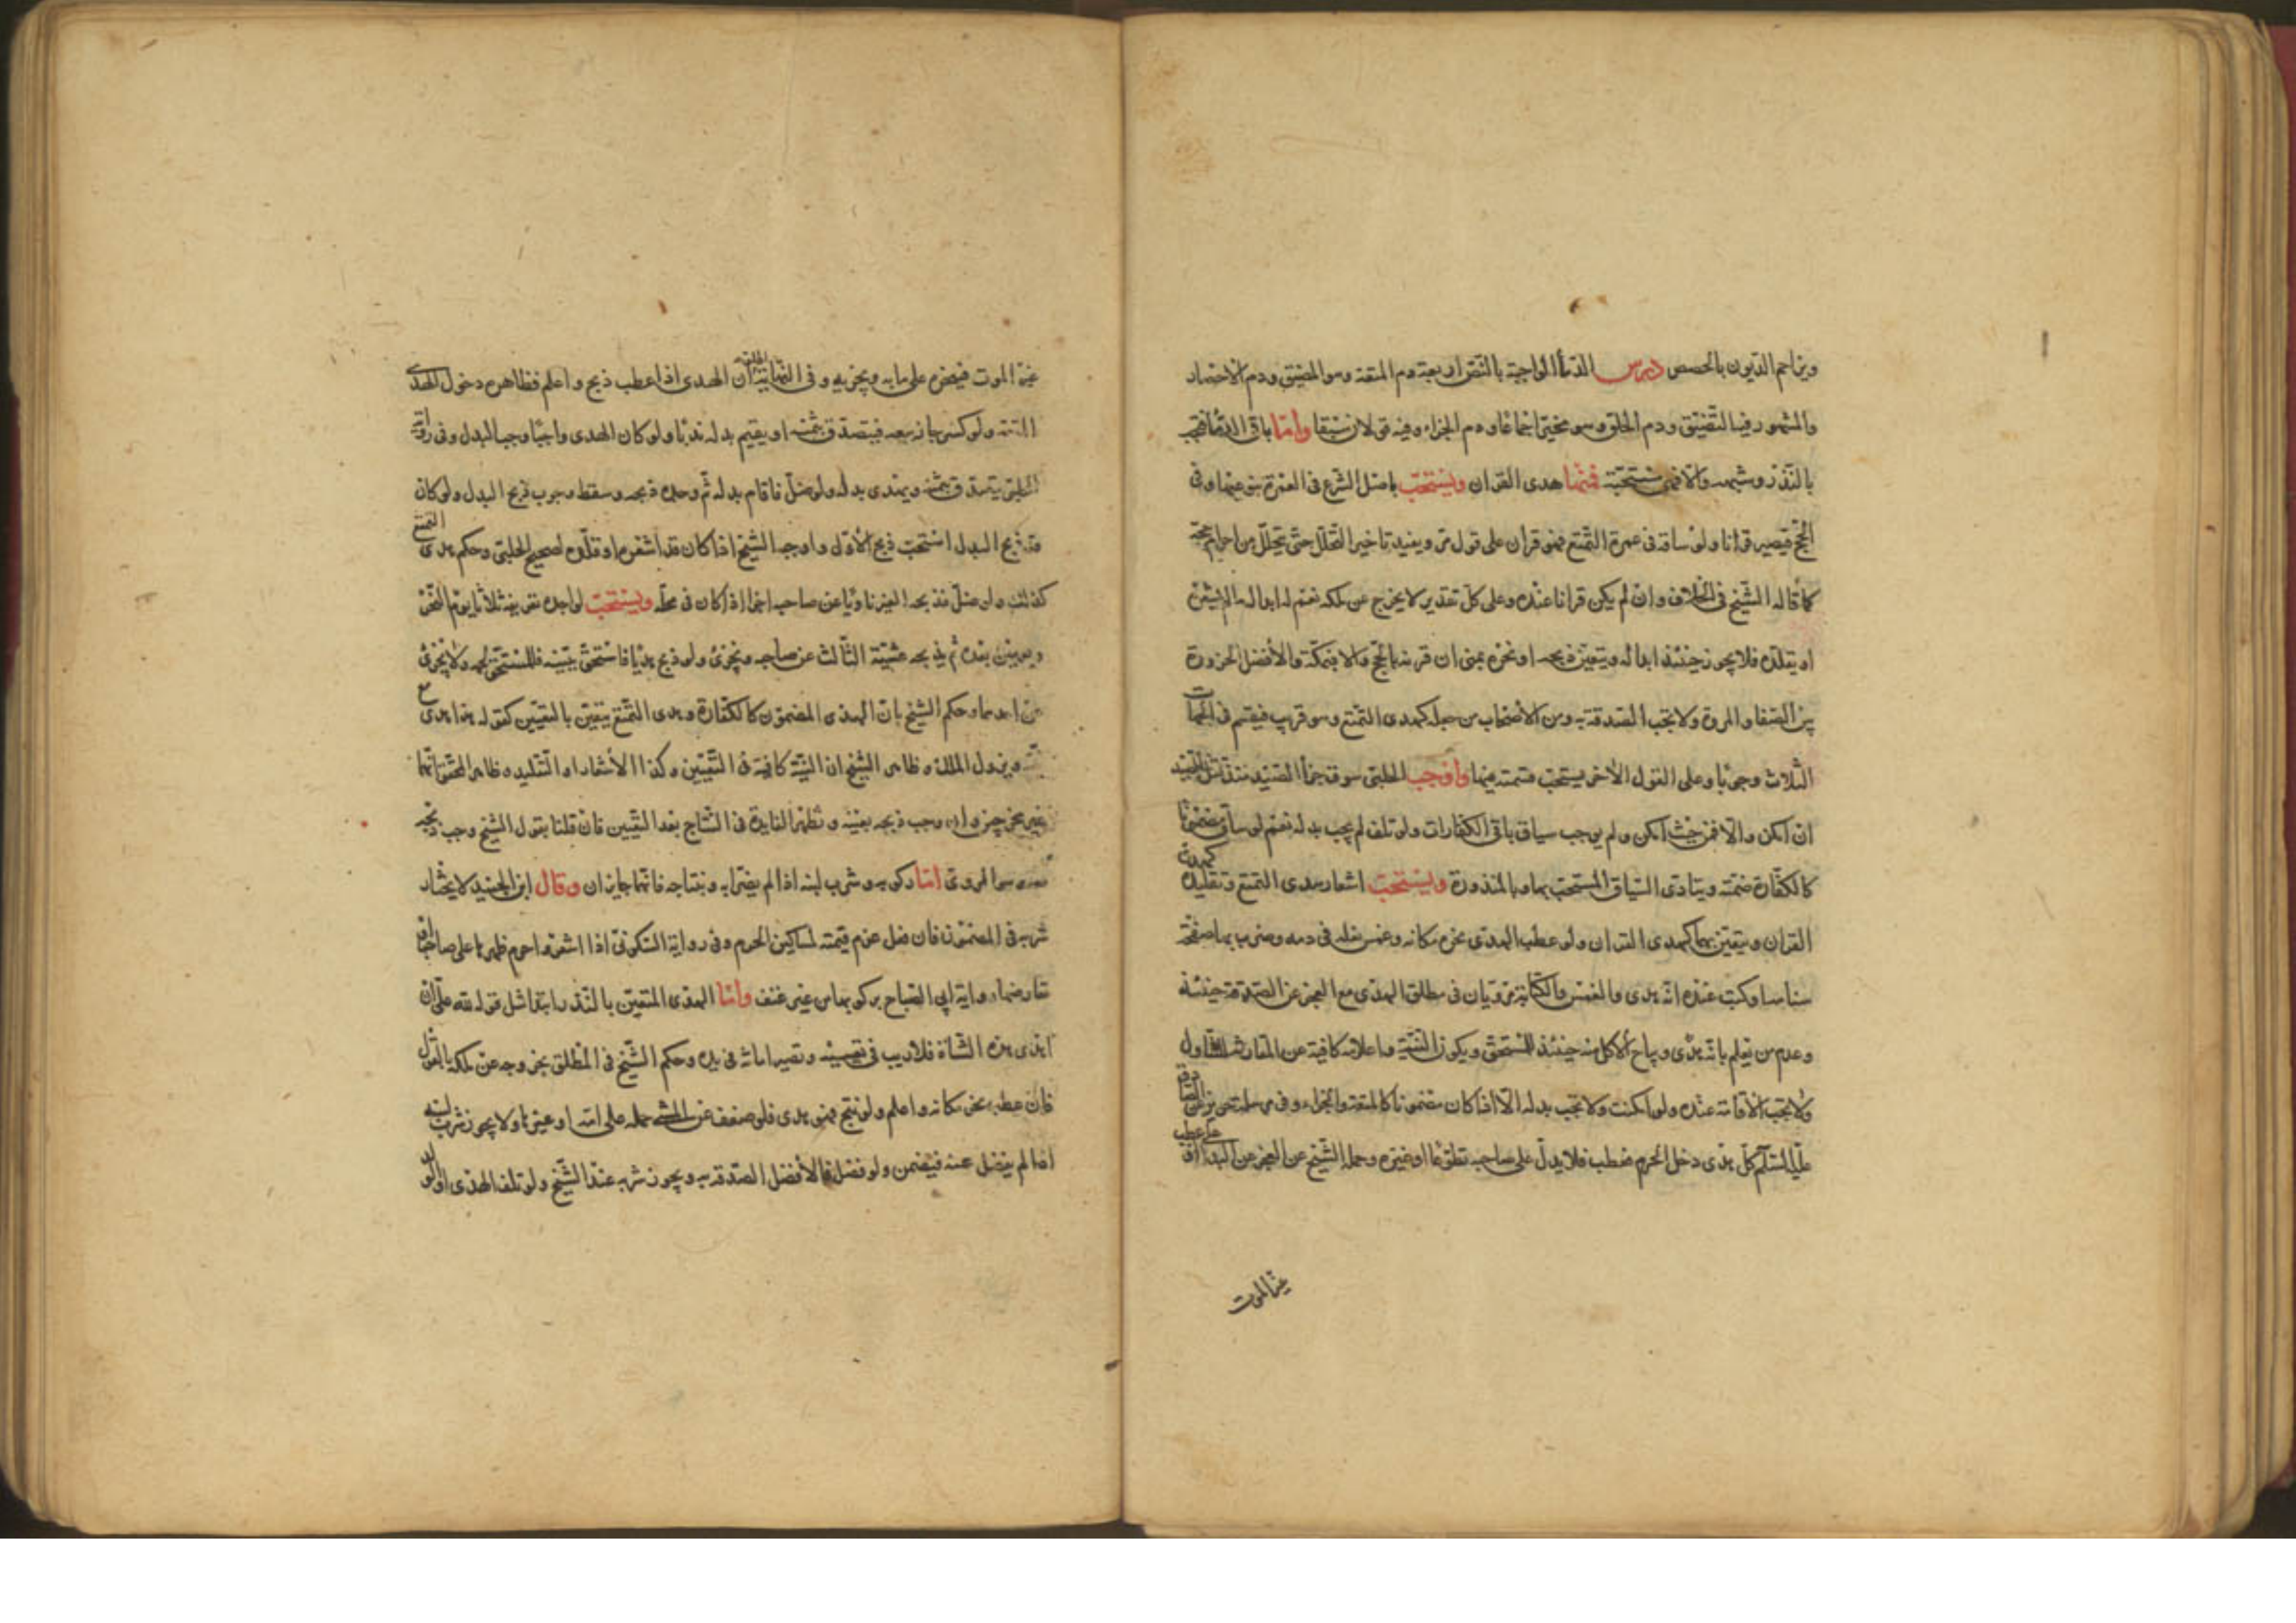 ويزاحم الديون بالحصص درس الدماء الواجبة بالنص اربعة دم المتعة وهو المضيق ودم الاحصار
والمشهور فيه التضييق ودم الحلق وهو مخير اجماعا ودم الجزاء وفيه قولان سبقا واما باقي الدماء فيجب
بالنذر وشبهه والا فهي مستحبة فمنها هدى القران ويستحب باصل الشرع في العمرة بنوعيها وفي
الحج فيصير قرانا ولو ساقه في عمرة التمتع فهو قران على قول مر ويفيد تاخير التحلل حتى يتحلل من احرام حجه
كما قاله الشيخ في الخلاف وان لم يكن قرانا عنده وعلى كل تقدير لا يخرج عن ملكه نعم له ابداله ما لم يشعره
او يقلده فلا يجوز حينئذ ابداله ويتعين ذبحه او نحره بمنى ان قرنه بالحج والا فبمكة والافضل الحزورة
بين الصفا والمروة ولا تجب الصدقة به ومن الاصحاب من جعله كهدى التمتع وهو قريب فيقسم في الجهات
الثلاث وجوبا وعلى القول الاخر يستحب قسمته فيها واوجب الحلبي سوق جزاء الصيد منذ قتل الصيد
ان امكن والا فمن حيث امكن ولم يوجب سياق باقي الكفارات ولو تلف لم يجب بدله نعم لو ساق مضمونا
كالكفارة ضمنه ويتادى السياق المستحب بها وبالمنذورة ويستحب اشعار هدى التمتع وتقليده كهدى
القران ويتعين بهما كهدى القران ولو عطب الهدى نحره مكانه وغمس نعله في دمه وضرب بها صفحة
سنامها وكتب عنده انه هدى والغمس والكتابة مرويان في مطلق الهدى مع العجز عن الصدقة حينئذ
وعدم من يعلم بانه هدى ويباح الاكل منه حينئذ للمستحق ويكون النية واعلامه كافية عن المقارنة للتناول
ولا تجب الاقامة عنده ولو امكنت ولا تجب بدله الا اذا كان مضمونا كالمتعة والجزاء وفي مرسلة حريز عن الصادق
عليه السلام كل هدى دخل الحرم فعطب فلا بدل على صاحبه تطوعا او غيره وحمله الشيخ عن العجز عن البدل او على عطب
غير الموت
غير الموت فينحره على ما به ويجزيه وفي النهاية ان الهدى اذا عطب ذبح واعلم فظاهره دخول الهدى
المتعة ولو كسر جاز بيعه فيتصدق بثمنه او يقيم بدله ندبا ولو كان الهدى واجبا وجب البدل وفي رواية
الحلبي يتصدق بثمنه ويهدى بدله ولو ضل فاقام بدله ثم وجده ذبحه وسقط وجوب ذبح البدل ولو كان
قد ذبح البدل استحب ذبح الاول واوجبه الشيخ اذا كان قد اشعره او قلده لصحيح الحلبي وحكم هدى التمتع
كذلك ولو ضل فذبحه الغير ناويا عن صاحبه اجزا اذا كان في محله ويستحب لواجده تعريفه ثلاثا يوم النحر
ويومين بعده ثم يذبحه عشية الثالث عن صاحبه ويجزى ولو ذبح هديا فاستحق ببينة فللمستحق لحمه ولا يجزى
عن احدهما وحكم الشيخ بان الهدى المضمون كالكفارة وهدى التمتع يتعين بالتعيين كقوله هذا هدى
ويزول الملك وظاهر الشيخ ان النية كافية في التعيين وكذا الاشعار او التقليد وظاهر المحقق انهما
غير مخرجين وان وجب ذبحه بعينه وتظهر الفايدة في النتاج بعد التعيين فان قلنا بقول الشيخ وجب ذبحه
معه وهو المروى اما ركوبه وشرب لبنه اذا لم يضر به وبنتاجه فانهما جايزان وقال ابن الجنيد لا يختار
شربه في المضمون فان فعل غرم قيمته لمساكين الحرم وفي رواية السكونى اذا اشعر واحرم ظهرها على صاحبها
تعارضها رواية ابي الصباح بركوبها من غير عنف واما الهدى المتعين بالنذر ابتدا مثل قوله لله على ان
اهدى هذه الشاة فلا ريب في تعيينه وتصير امانة في يده وحكم الشيخ في المطلق بخروجه عن ملكه بالقول
فان عطب نحر مكانه واعلم ولو نتج فهو هدى فلو ضعف عن المشى حمله على امه او غيرها ولا يجوز شرب لبنه
اذا لم يفضل عنه فيضمن ولو فضل فالافضل الصدقة به ويجوز شربه عند الشيخ ولو تلف الهدى او الولد